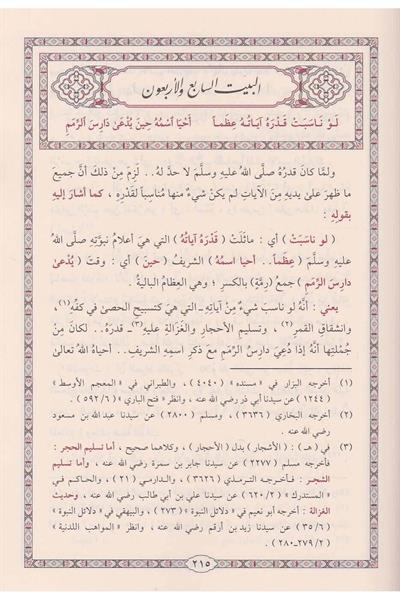 البيت السابع والأربعون
لَوْ نَاسَبَتْ قَدْرَهُ آيَاتُهُ عِظَماً أَحْيَا اسْمُهُ حِينَ يُدْعَىٰ دَارِسَ الرِّمَمِ
ولمَّا كانَ قدرُهُ صلَّى اللهُ عليهِ وسلَّمَ لا حدَّ لهُ.. لَزِمَ مِنْ ذلكَ أنَّ جميعَ
ما ظهرَ علىٰ يديهِ مِنَ الآياتِ لم يكنْ شيءٌ منها مُناسِباً لقدْرِهِ ، كما أشارَ إليهِ
بقولِهِ :
( لو ناسَبَتْ ) أي : ماثلَتْ ( قَدْرَهُ آياتُهُ ) التي هيَ أعلامُ نبوَّتِهِ صلَّى اللهُ
عليهِ وسلَّمَ ( عِظَماً.. أحيا اسمُهُ ) الشريفُ ( حينَ ) أي : وقتَ ( يُدْعَىٰ
دارِسَ الرِّمَمِ ) جمعُ ( رِمَّةٍ ) بالكسرِ ؛ وهيَ العِظامُ الباليةُ .
يعني : أنَّهُ لو ناسبَ شيءٌ مِنْ آياتِهِ ـ التي هيَ كتسبيحِ الحصىٰ في كفِّهِ(١) ،
وانشقاقِ القمرِ(٢) ، وتسليمِ الأحجارِ والغَزالةِ عليهِ(٣) ـ قدرَهُ.. لكانَ مِنْ
جُمْلتِها أنَّهُ إذا دُعِيَ دارِسُ الرِّمَمِ معَ ذكرِ اسمِهِ الشريفِ.. أحياهُ اللهُ تعالىٰ
(١) أخرجه البزار في « مسنده » ( ٤٠٤٠ ) ، والطبراني في « المعجم الأوسط »
( ١٢٤٤ ) عن سيدنا أبي ذر رضي الله عنه ، وانظر « فتح الباري » ( ٥٩٢/٦ ) .
(٢) أخرجه البخاري ( ٣٦٣٦ ) ، ومسلم ( ٢٨٠٠ ) عن سيدنا عبد الله بن مسعود
رضي الله عنه .
(٣) في ( هـ ) : ( الأشجار ) بدل ( الأحجار ) ، وكلاهما صحيح ، أما تسليم الحجر :
فأخرجه مسلم ( ٢٢٧٧ ) عن سيدنا جابر بن سمرة رضي الله عنه ، وأما تسليم
الشجر : فأخرجه الترمذي ( ٣٦٢٦ ) ، والدارمي ( ٢١ ) ، والحاكم في
« المستدرك » ( ٦٢٠/٢ ) عن سيدنا علي بن أبي طالب رضي الله عنه ، وحديث
الغزالة : أخرجه أبو نعيم في « دلائل النبوة » ( ٢٧٣ ) ، والبيهقي في « دلائل النبوة »
( ٣٥/٦ ) عن سيدنا زيد بن أرقم رضي الله عنه ، وانظر « المواهب اللدنية »
( ٢٧٩/٢ـ٢٨٠ ) .
٢١٥